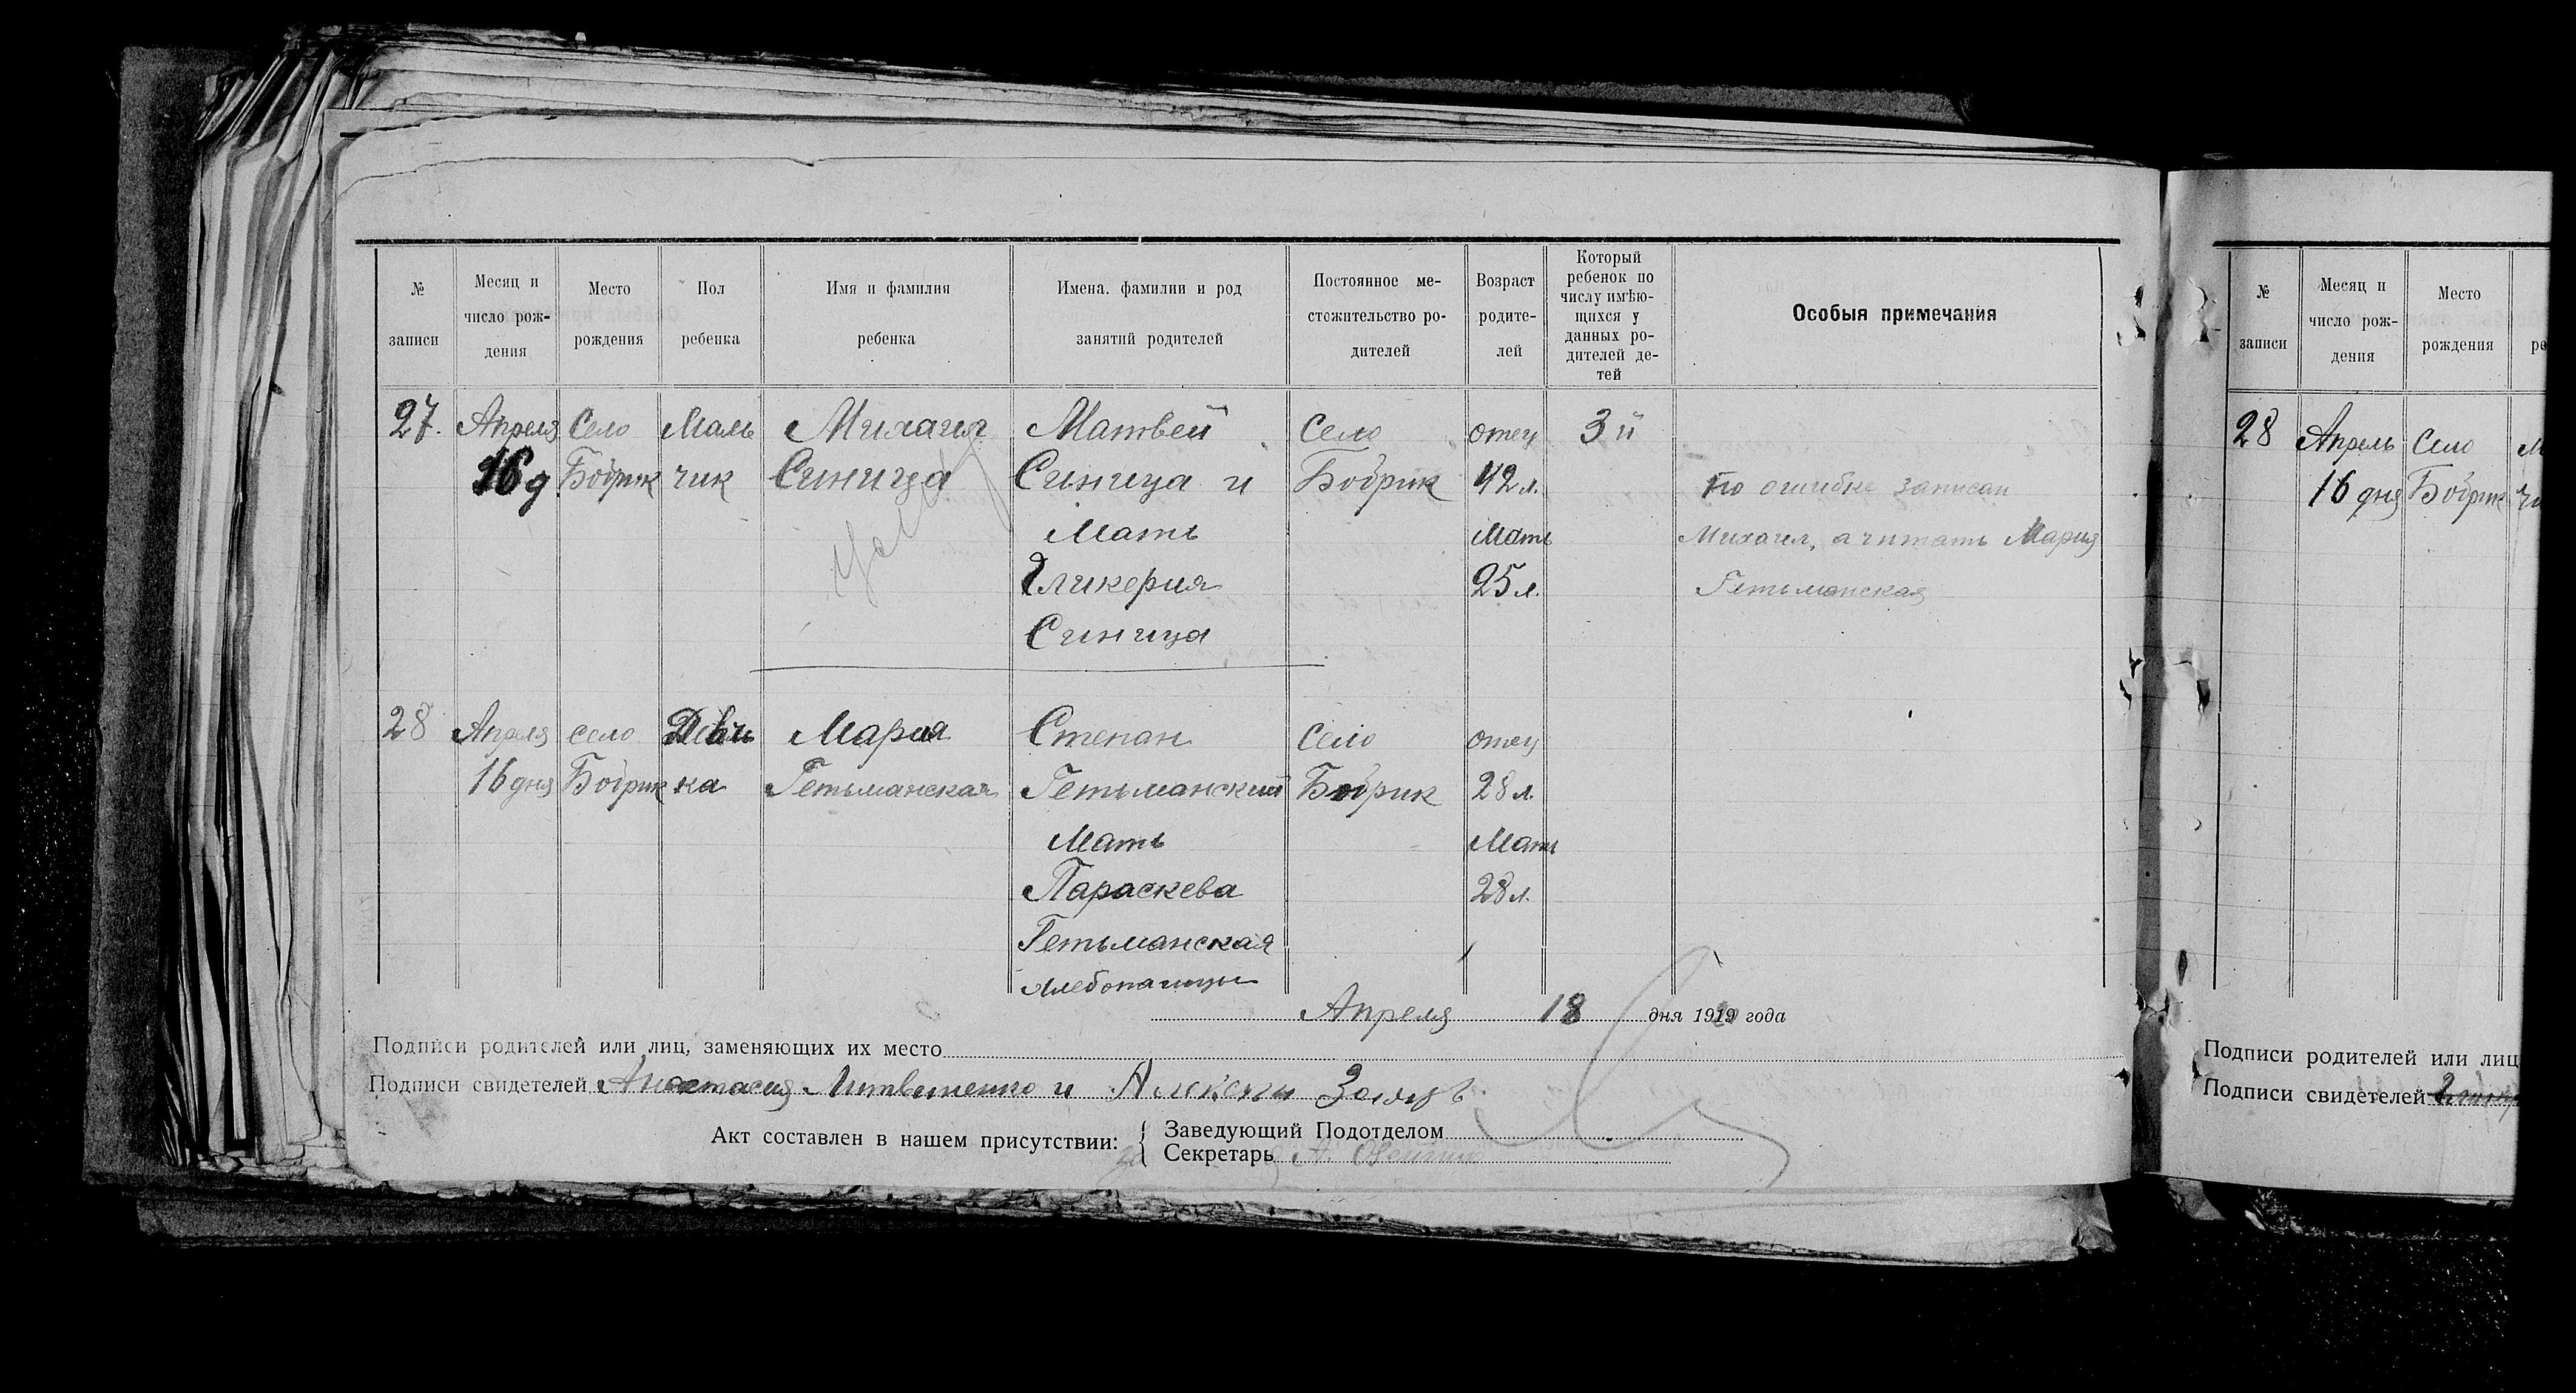 № записи
Месяц и число рождения
Место рождения
Пол ребенка
Имя и фамилия ребенка
Имена, фамилии и род занятий родителей
Постоянное местожительство родителей
Возраст родителей
Который ребенок по числу имѣющихся у данных родителей детей
Особыя примечания
27. Апреля Село Маль Михаил Матвей Село отец 3й
16 д Бобрик чик Синица Синица и Бобрик 42 л. По ошибке записан
Мать Мать Михаил, а читать Мария
Гликерия 25 л. Гетьманская
Синица
28 Апреля село Девч Мария Степан Село отец
16 дня Бобрик ка Гетьманская Гетьманский Бобрик 28 л.
Мать Мать
Параскева 28 л.
Гетьманская
хлебопашцы
Апреля 18 дня 1920 года
Подписи родителей или лиц, заменяющих их место
Подписи свидетелей Анастасия Литвиненко и Алексей
Акт составлен в нашем присутствии:
Заведующий Подотделом
Секретарь А.
№ записи
Месяц и число рождения
Место рождения
ре
28 Апрель Село М
16 дня Бобрик чи
Подписи родителей или лиц
Подписи свидетелей